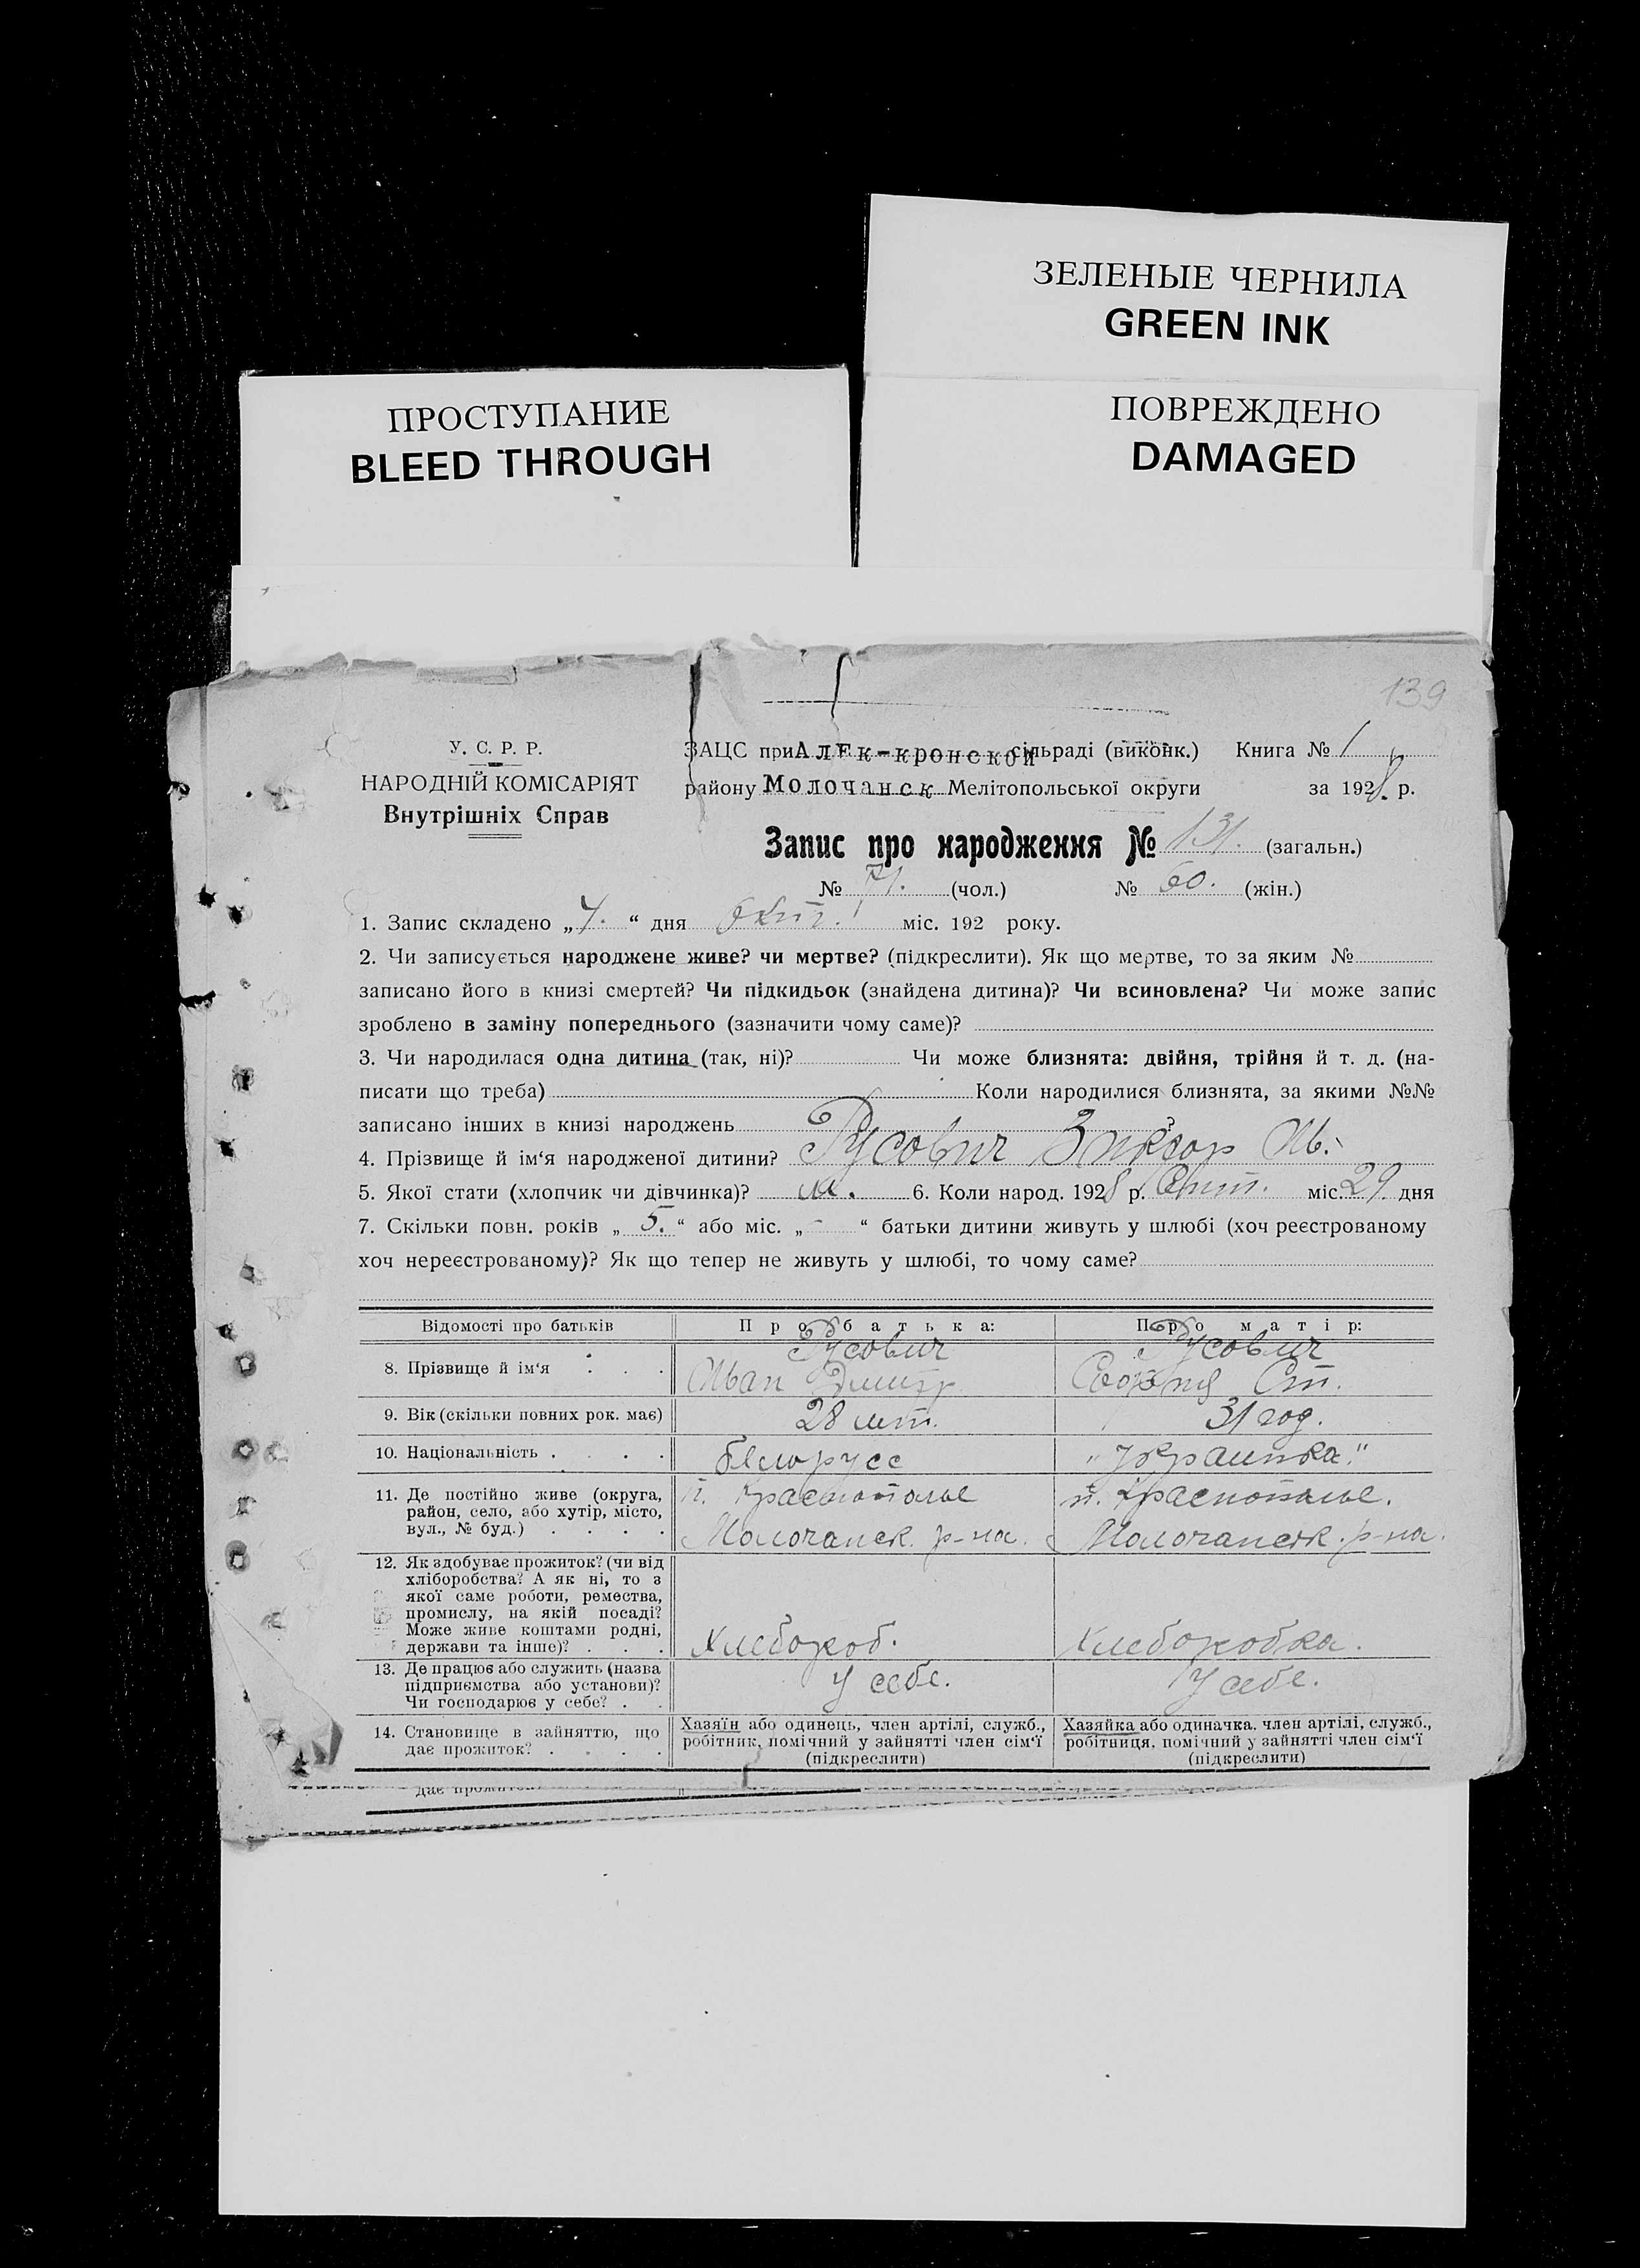 ЗЕЛЕНЫЕ ЧЕРНИЛА
GREEN INK
ПРОСТУПАНИЕ
BLEED THROUGH
ПОВРЕЖДЕНО
DAMAGED
139
У. С. Р. Р.
НАРОДНІЙ КОМІСАРІЯТ
Внутрішніх Справ
ЗАЦС при Алек-кронской сільраді (виконк.) Книга № 1
району Молочанск Мелітопольської округи за 1928 р.
Запис про народження № 131. (загальн.)
№ 71. (чол.) № 60. (жін.)
1. Запис складено „ 4. “ дня Окт. міс. 192 року.
2. Чи записується народжене живе? чи мертве? (підкреслити). Як що мертве, то за яким №
записано його в книзі смертей? Чи підкидьок (знайдена дитина)? Чи всиновлена? Чи може запис
зроблено в заміну попереднього (зазначити чому саме)?
3. Чи народилася одна дитина (так, ні)? Чи може близнята: двійня, трійня й т. д. (на-
писати що треба) Коли народилися близнята, за якими №№
записано інших в книзі народжень ?
4. Прізвище й ім‘я народженої дитини? Русович Виктор Ив.
5. Якої стати (хлопчик чи дівчинка)? м. 6. Коли народ. 1928 р. міс. 29 дня
7. Скільки повн. років „ 5. “ або міс. „ - “ батьки дитини живуть у шлюбі (хоч реєстрованому
хоч нереєстрованому)? Як що тепер не живуть у шлюбі, то чому саме?
Відомості про батьків
Про батька:
Про матір:
8. Прізвище й ім‘я . . .
Русович
Иван Дмитр
Русович
Ст.
9. Вік (скільки повних рок. має)
28 лет.
31 год.
10. Національність . . . .
белорусс
„украинка.“
11. Де постійно живе (округа,
район, село, або хутір, місто,
вул., № буд.) . . . .
п. Краснополье
Молочанск. р-на.
п. Краснополье.
Молочанск. р-на.
12. Як здобуває прожиток? (чи від
хліборобства? А як ні, то з
якої саме роботи, ремества,
промислу, на якій посаді?
Може живе коштами родні,
держави та інше)? . . .
Хлебороб.
Хлеборобка.
13. Де працює або служить (назва
підприємства або установи)?
Чи господарює у себе? . .
У себе.
У себе.
14. Становище в зайняттю, що
дає прожиток? . . . .
Хазяїн або одинець, член артілі, служб.,
робітник, помічний у зайнятті член сім‘ї
(підкреслити)
Хазяйка або одиначка, член артілі, служб.,
робітниця, помічний у зайнятті член сім‘ї
(підкреслити)
дає прожиток?